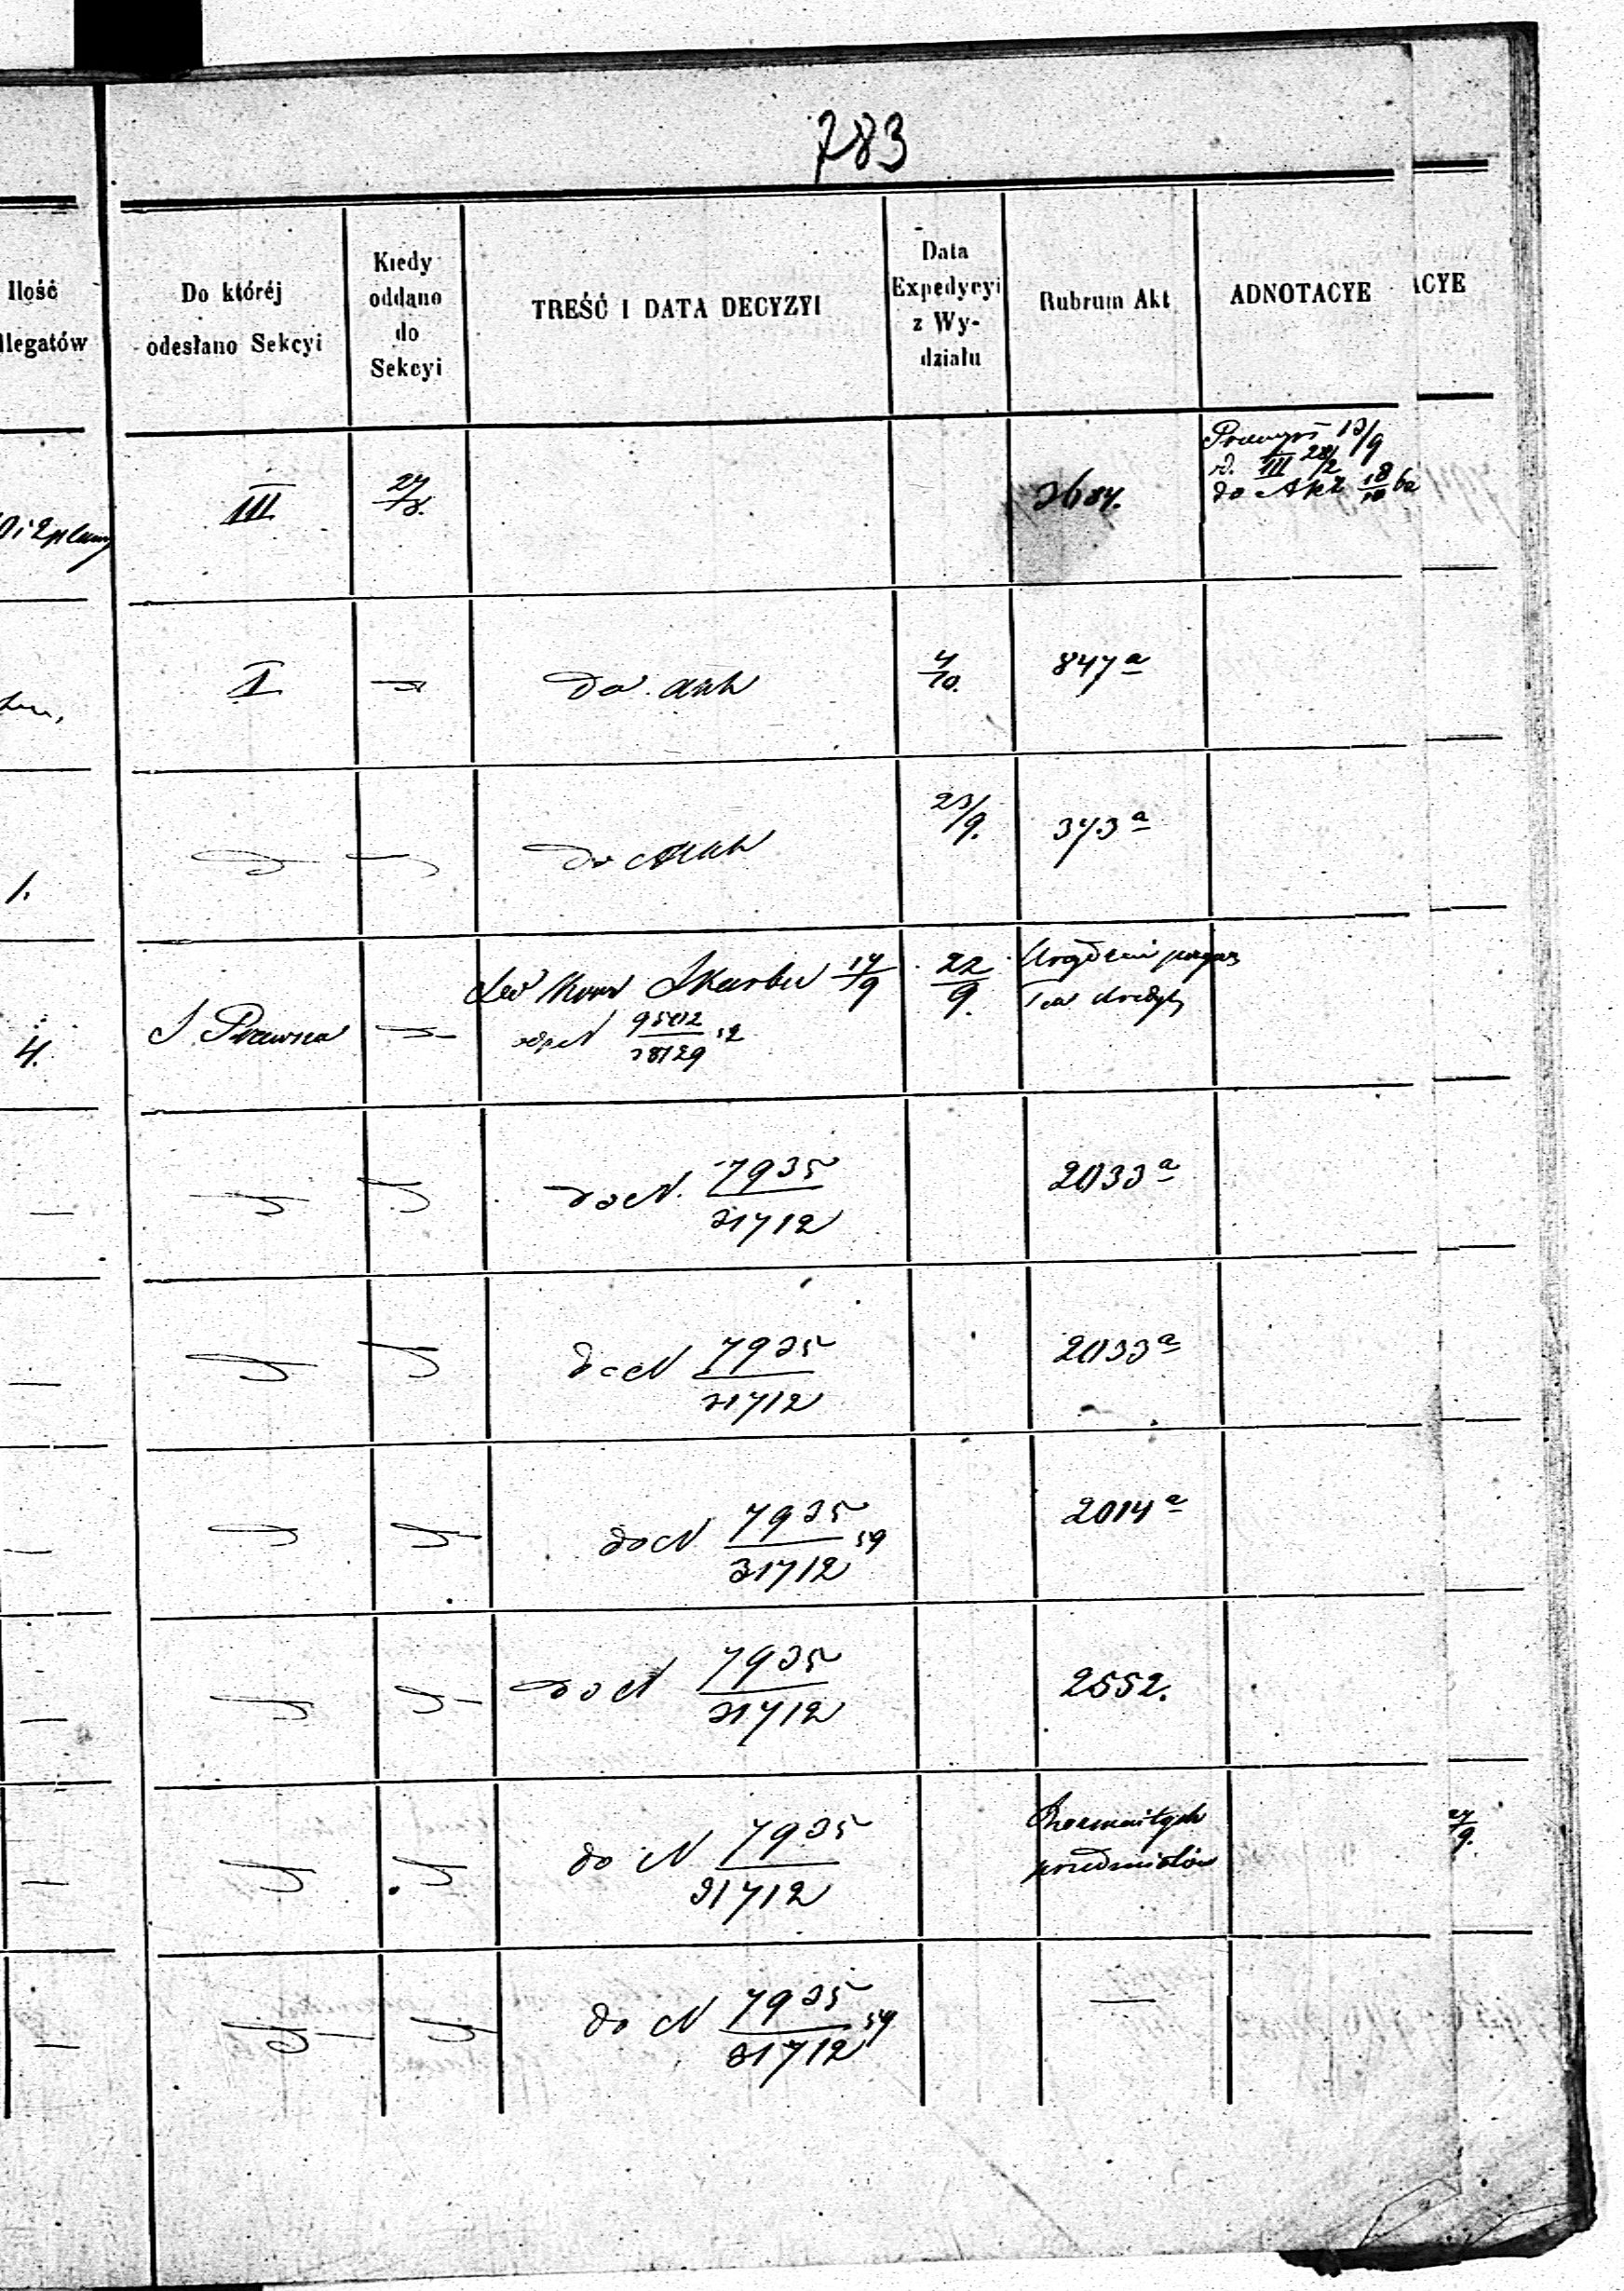 783
Ilość
llegatów
Do któréj
odesłano Sekcyi
Kiedy
oddano
do
Sekcyi
TREŚĆ I DATA DECYZYI
Data
Expedycyi
z Wy-
działu
Rubrum Akt
ADNOTACYE
ACYE
III
27/8.
2684.
13/9
III 28/2
do Akt 18/10 62
I
do akt
4/10.
847a
1.
do Akt
23/9.
373a
4.
S. Prawna
Kom Skarbu 17/9
22/9.
9502/28129 52
— do N. 7935/31712
2033a
— do N 7935/31712
2033a
— do N 7935/31712 59
2014a
— do N 7935/31712
2552.
— do N 7935/31712
Rozmaitych
przedmiotów
27/9.
— do N 7935/31712 59
—